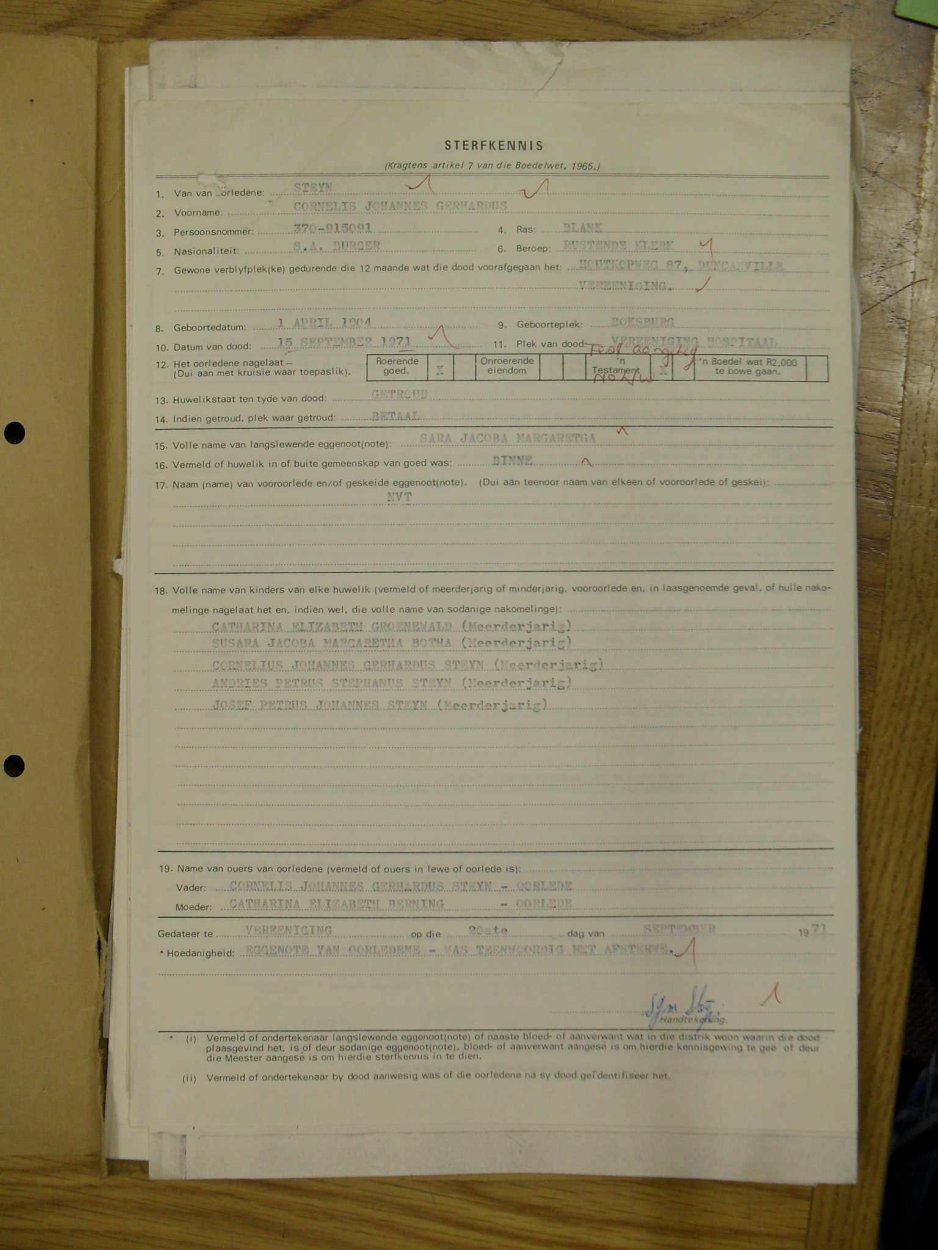 STERFKENNIS
(Kragtens artikel 7 van die Boedelwet, 1965.)
1. Van van oorledene: STEYN
2. Voorname: CORNELIS JOHANNES GERHARDUS
3. Persoonsnommer: 370-915091 4. Ras: BLANK
5. Nasionaliteit: S.A. BURGER 6. Beroep: RUSTENDE KLERK
7. Gewone verblyfplek(ke) gedurende die 12 maande wat die dood voorafgegaan het: HOUTKOPWEG 87, DUNCANVILLE
VEREENIGING.
8. Geboortedatum: 1 APRIL 1904 9. Geboorteplek: BOKSBURG
10. Datum van dood: 15 SEPTEMBER 1971 11. Plek van dood VEREENIGING HOSPITAAL
12. Het oorledene nagelaat— (Dui aan met kruisie waar toepaslik). Roerende goed. X Onroerende eiendom 'n Testament X 'n Boedel wat R2,000 te bowe gaan.
13. Huwelikstaat ten tyde van dood: GETROUD
14. Indien getroud, plek waar getroud: BETAAL
15. Volle name van langslewende eggenoot(note): SARA JACOBA MARGARETGA
16. Vermeld of huwelik in of buite gemeenskap van goed was: BINNE
17. Naam (name) van vooroorlede en/of geskeide eggenoot(note). (Dui aan teenoor naam van elkeen of vooroorlede of geskei):
NVT
18. Volle name van kinders van elke huwelik (vermeld of meerderjarig of minderjarig, vooroorlede en, in laasgenoemde geval, of hulle nako-
melinge nagelaat het en, indien wel, die volle name van sodanige nakomelinge):
CATHARINA ELIZABETH GROENEWALD (Meerderjarig)
SUSARA JACOBA MARGARETHA BOTHA (Meerderjarig)
CORNELIUS JOHANNES GERHARDUS STEYN (Meerderjarig)
ANDRIES PETRUS STEPHANUS STEYN (Meerderjarig)
JOSEF PETRUS JOHANNES STEYN (Meerderjarig)
19. Name van ouers van oorledene (vermeld of ouers in lewe of oorlede is):
Vader: CORNELIS JOHANNES GERHARDUS STEYN - OORLEDE
Moeder: CATHARINA ELIZABETH BERNING - OORLEDE
Gedateer te VEREENIGING op die 20ste dag van SEPTEMBER 1971
* Hoedanigheid: EGGENOTE VAN OORLEDENE - WAS TEENWOORDIG MET AFSTERWE.
Handtekening.
* (i) Vermeld of ondertekenaar langslewende eggenoot(note) of naaste bloed- of aanverwant wat in die distrik woon waarin die dood
plaasgevind het, is of deur sodanige eggenoot(note), bloed- of aanverwant aangesê is om hierdie kennisgewing te gee of deur
die Meester aangesê is om hierdie sterfkennis in te dien.
(ii) Vermeld of ondertekenaar by dood aanwesig was of die oorledene na sy dood geïdentifiseer het.